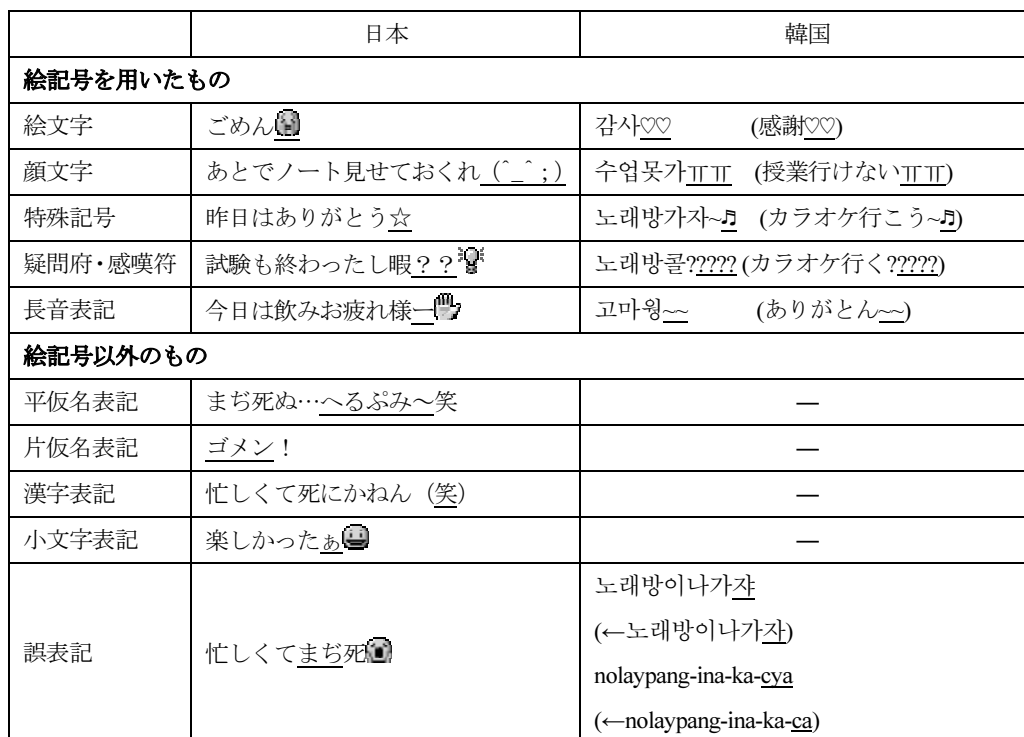 日本 韓国
絵記号を用いたもの
絵文字 ごめん 감사♡♡ (感謝♡♡)
顔文字 あとでノート見せておくれ (^_^;) 수업못가ㅠㅠ (授業行けないㅠㅠ)
特殊記号 昨日はありがとう☆ 노래방가자~♬ (カラオケ行こう~♬)
疑問府・感嘆符 試験も終わったし暇？？ 노래방콜????? (カラオケ行く?????)
長音表記 今日は飲みお疲れ様ー 고마웡~~ (ありがとん~~)
絵記号以外のもの
平仮名表記 まぢ死ぬ…へるぷみ～笑 ―
片仮名表記 ゴメン！ ―
漢字表記 忙しくて死にかねん（笑） ―
小文字表記 楽しかったぁ ―
誤表記 忙しくてまぢ死
노래방이나가쟈
(←노래방이나가자)
nolaypang-ina-ka-cya
(←nolaypang-ina-ka-ca)